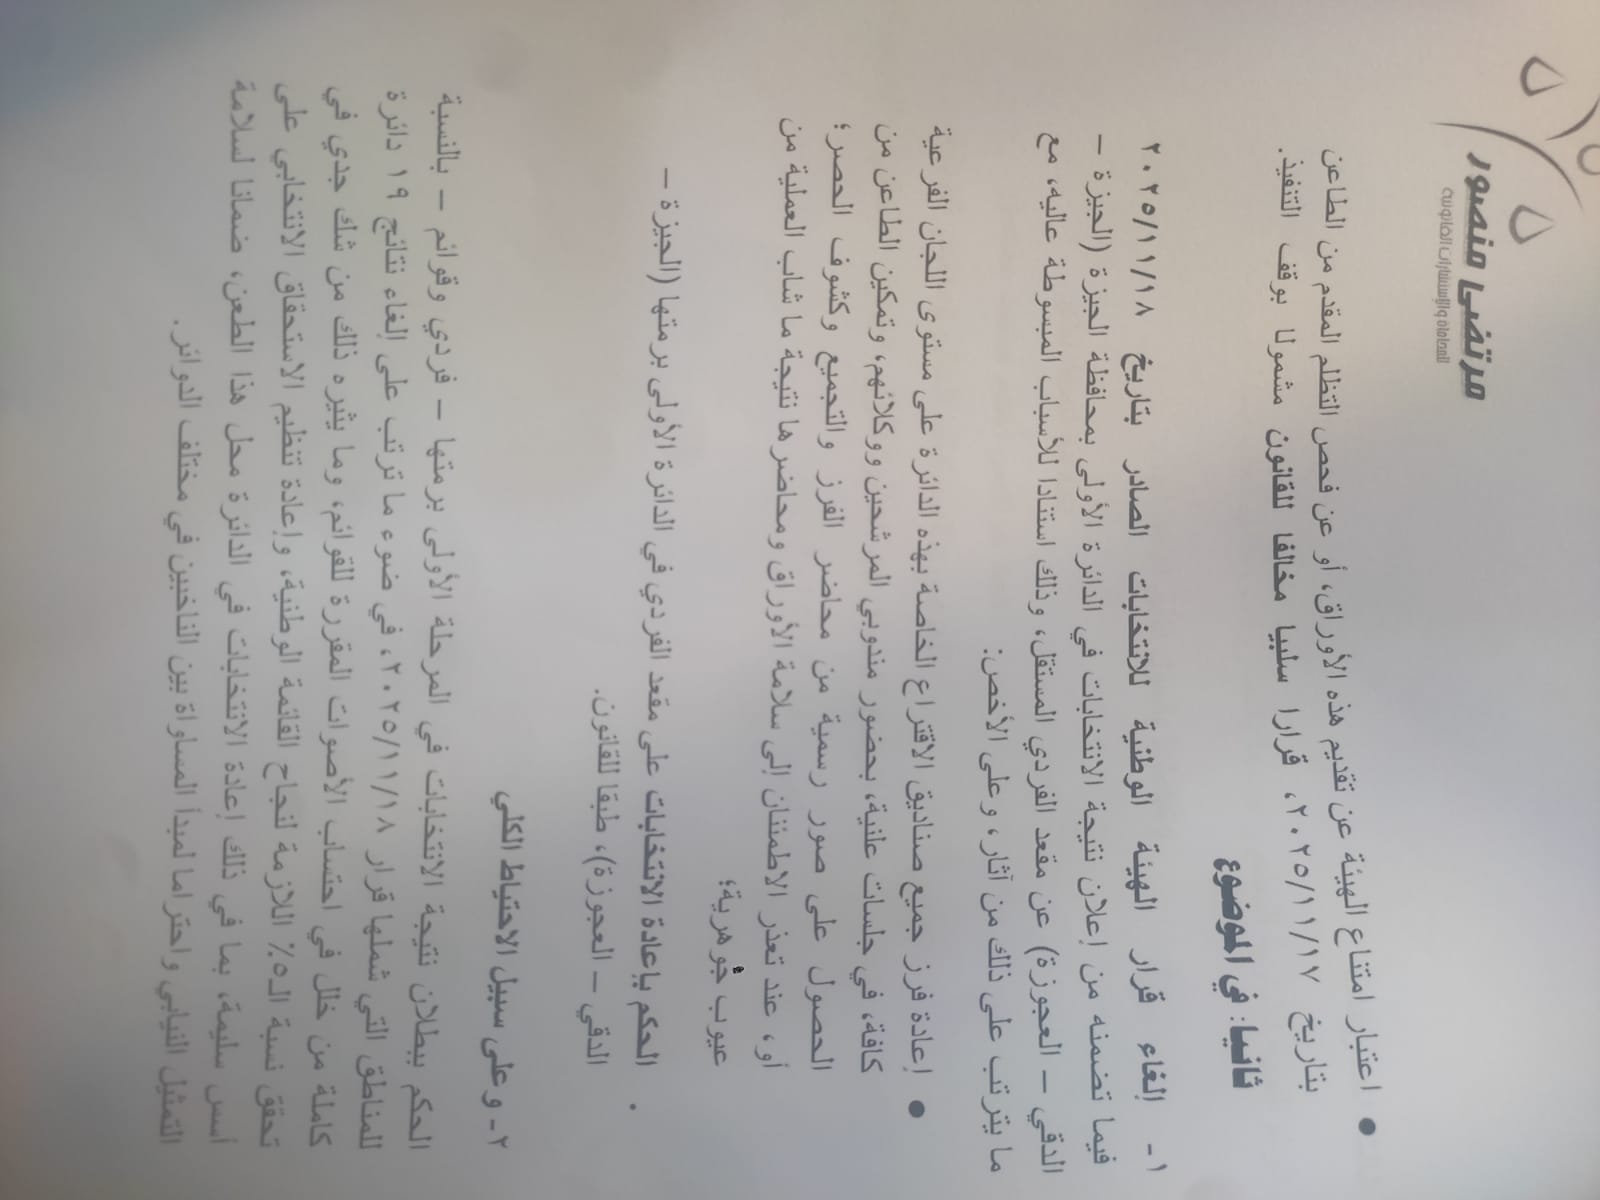 مرتضى منصور
للمحاماة والإستشارات القانونية
● اعتبار امتناع الهيئة عن تقديم هذه الأوراق، أو عن فحص التظلم المقدم من الطاعن
بتاريخ ٢٠٢٥/١١/١٧، قرارا سلبيا مخالفا للقانون مشمولا بوقف التنفيذ.
ثانيا: في الموضوع
١- إلغاء قرار الهيئة الوطنية للانتخابات الصادر بتاريخ ٢٠٢٥/١١/١٨
فيما تضمنه من إعلان نتيجة الانتخابات في الدائرة الأولى بمحافظة الجيزة (الجيزة –
الدقي – العجوزة) عن مقعد الفردي المستقل، وذلك استنادا للأسباب المبسوطة عاليه، مع
ما يترتب على ذلك من آثار، وعلى الأخص:
● إعادة فرز جميع صناديق الاقتراع الخاصة بهذه الدائرة على مستوى اللجان الفرعية
كافة، في جلسات علنية، بحضور مندوبي المرشحين ووكلائهم، وتمكين الطاعن من
الحصول على صور رسمية من محاضر الفرز والتجميع وكشوف الحصر؛
أو، عند تعذر الاطمئنان إلى سلامة الأوراق ومحاضرها نتيجة ما شاب العملية من
عيوب جوهرية؛
• الحكم بإعادة الانتخابات على مقعد الفردي في الدائرة الأولى برمتها (الجيزة –
الدقي – العجوزة)، طبقا للقانون.
٢- وعلى سبيل الاحتياط الكلي
الحكم ببطلان نتيجة الانتخابات في المرحلة الأولى برمتها – فردي وقوائم – بالنسبة
للمناطق التي شملها قرار ٢٠٢٥/١١/١٨، في ضوء ما ترتب على إلغاء نتائج ١٩ دائرة
كاملة من خلل في احتساب الأصوات المقررة للقوائم، وما يثيره ذلك من شك جدي في
تحقق نسبة الـ٥٪ اللازمة لنجاح القائمة الوطنية، وإعادة تنظيم الاستحقاق الانتخابي على
أسس سليمة، بما في ذلك إعادة الانتخابات في الدائرة محل هذا الطعن، ضمانا لسلامة
التمثيل النيابي واحتراما لمبدأ المساواة بين الناخبين في مختلف الدوائر.